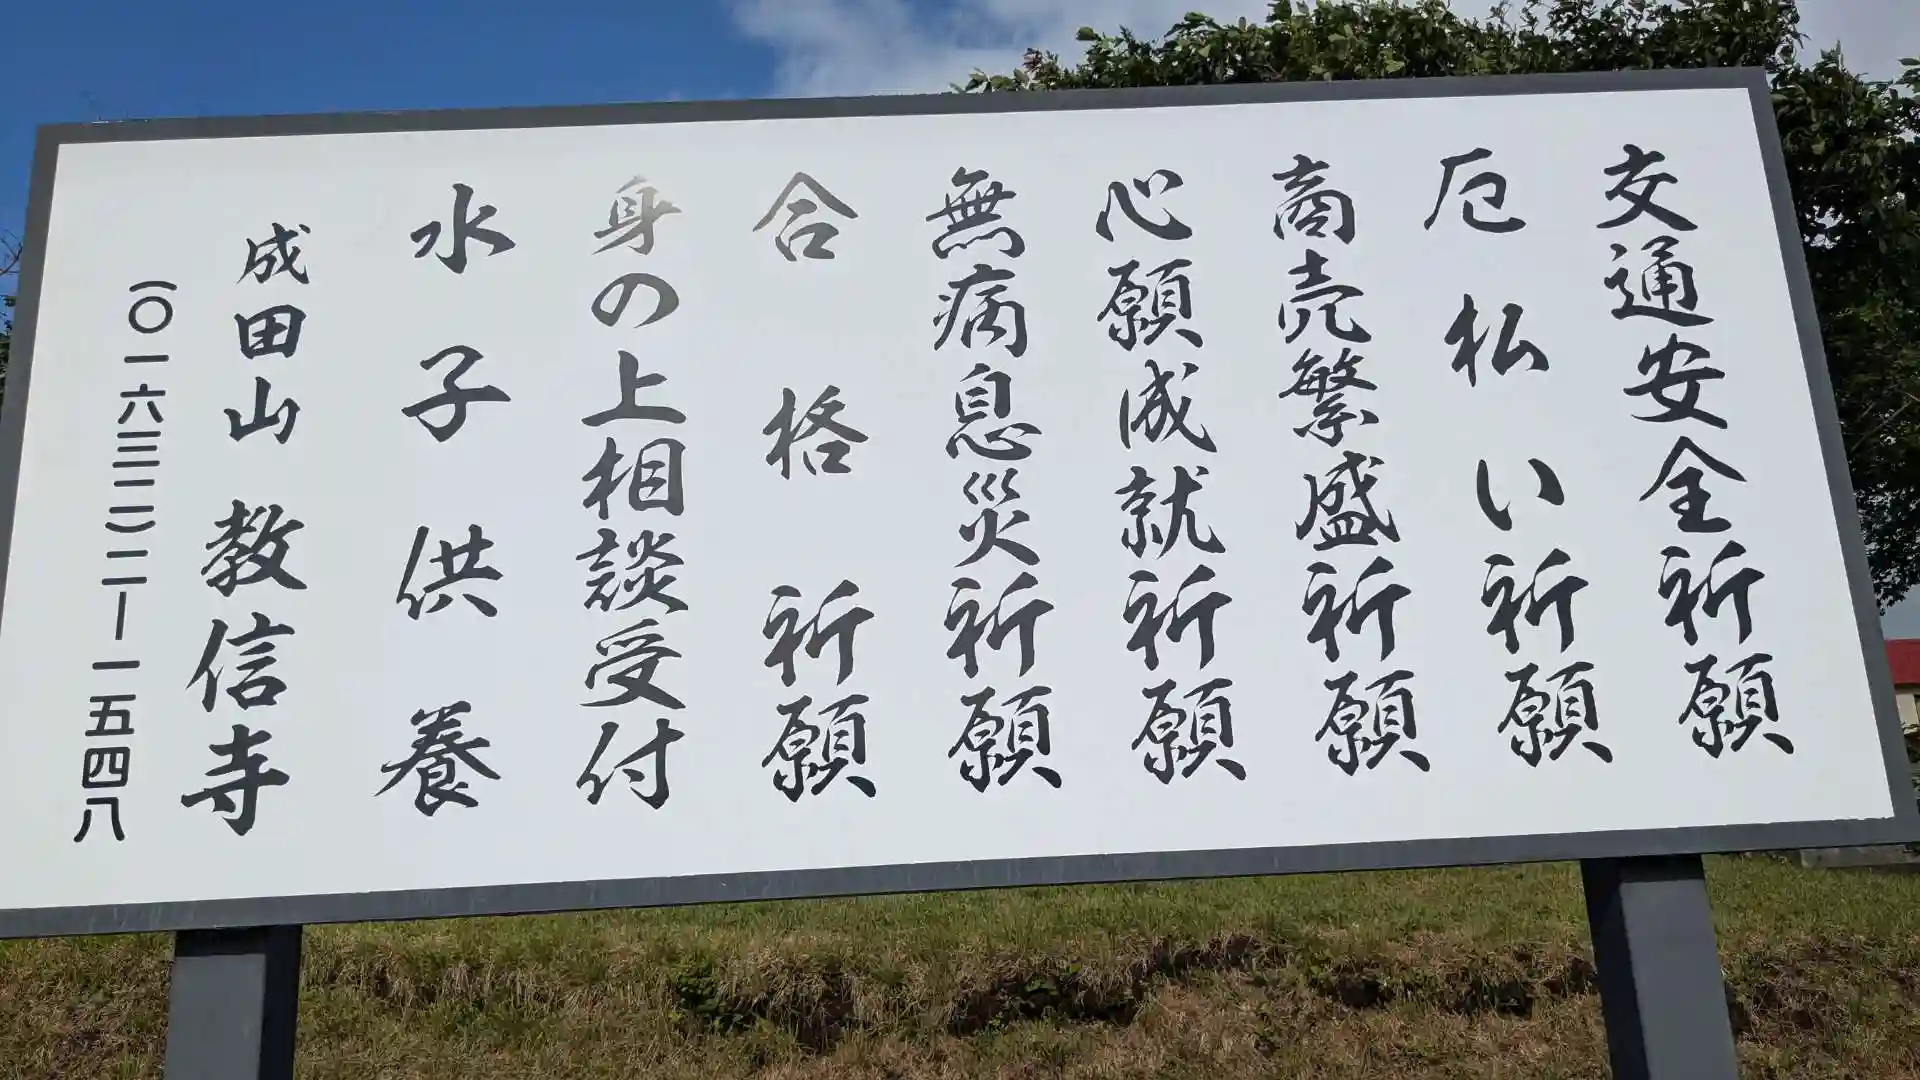 交通安全祈願
厄払い祈願
商売繁盛祈願
心願成就祈願
無病息災祈願
合格祈願
身の上相談受付
水子供養
成田山 教信寺
(〇一六三二)二ー一五四八